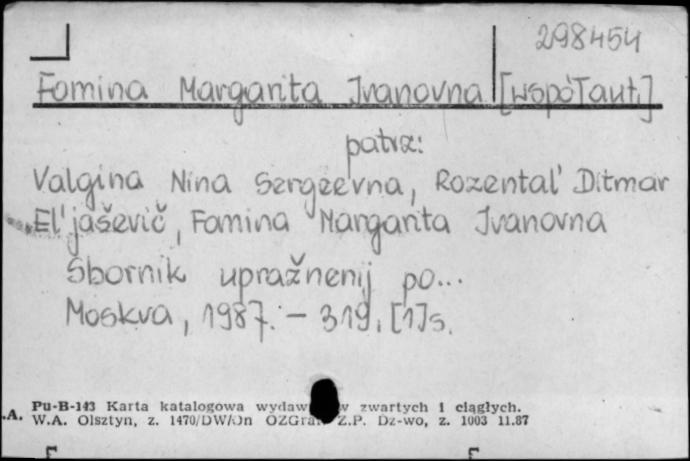 298454
Fomina Margarita Ivanovna [współaut.]
patrz:
Valgina Nina Sergeevna, Rozental' Ditmar
El'jaševič, Fomina Margarita Ivanovna
Sbornik upražnenij po...
Moskva, 1987. – 319, [1]s.
Pu-B-143 Karta katalogowa wydaw w zwartych i ciągłych.
.A. W.A. Olsztyn, z. 1470/DW/Jn OZGraf. Z.P. Dz-wo, z. 1003 11.87